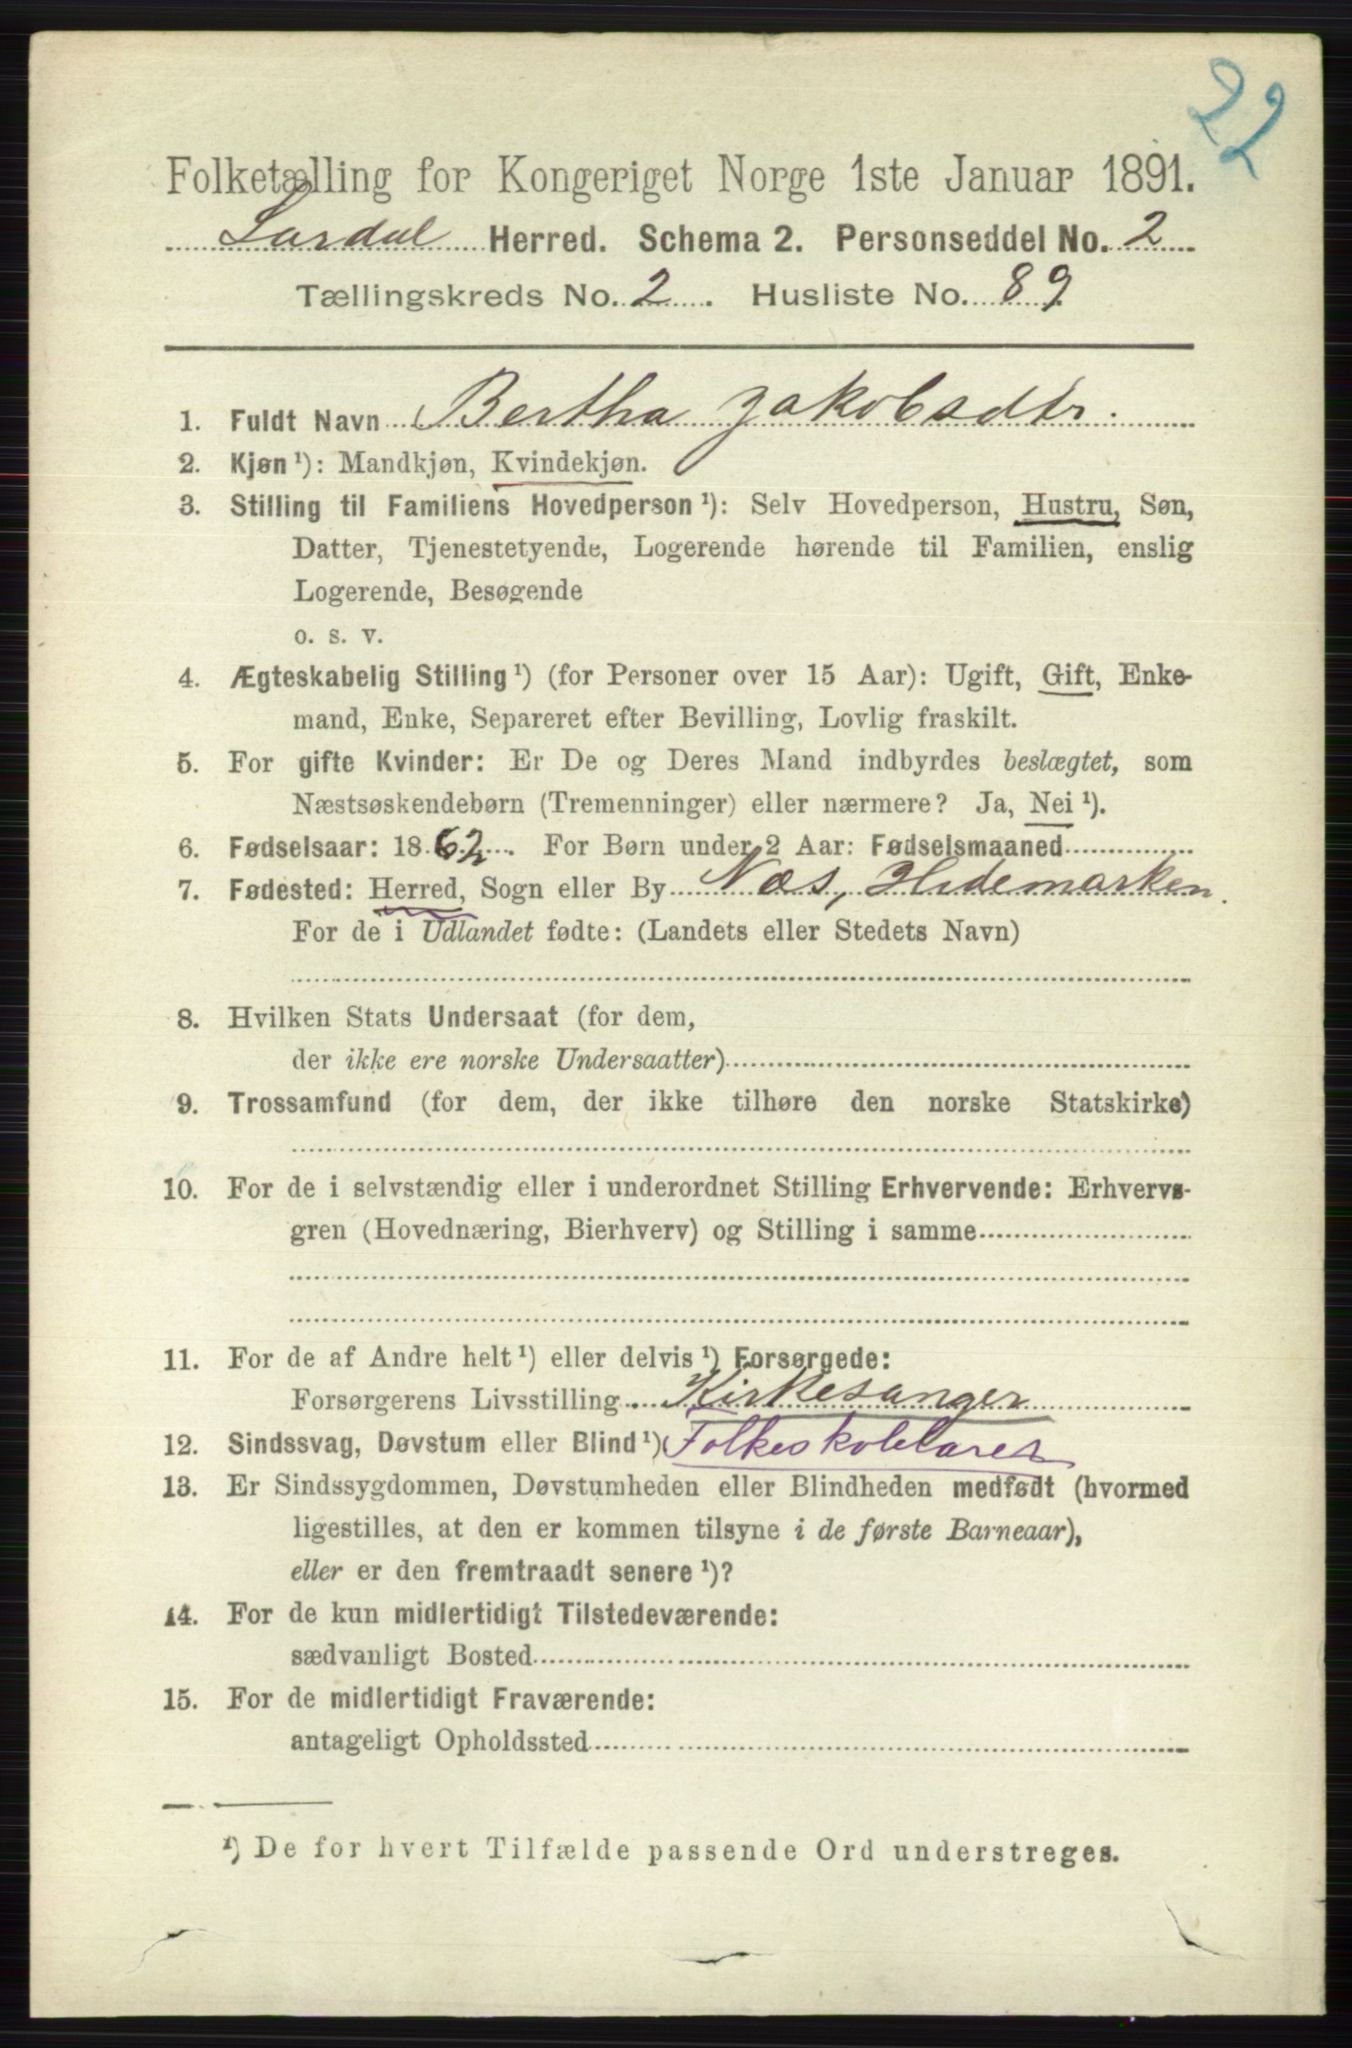 22
Folketælling for Kongeriget Norge 1ste Januar 1891.
Lardal Herred. Schema 2. Personseddel No. 2
Tællingskreds No. 2. Husliste No. 89
1. Fuldt Navn Bertha Jakobsdtr.
2. Kjøn ¹): Mandkjøn, Kvindekjøn.
3. Stilling til Familiens Hovedperson ¹): Selv Hovedperson, Hustru, Søn,
Datter, Tjenestetyende, Logerende hørende til Familien, enslig
Logerende, Besøgende
o. s. v.
4. Ægteskabelig Stilling ¹) (for Personer over 15 Aar): Ugift, Gift, Enke-
mand, Enke, Separeret efter Bevilling, Lovlig fraskilt.
5. For gifte Kvinder: Er De og Deres Mand indbyrdes beslægtet, som
Næstsøskendebørn (Tremenninger) eller nærmere? Ja, Nei ¹).
6. Fødselsaar: 1862. For Børn under 2 Aar: Fødselsmaaned
7. Fødested: Herred, Sogn eller By Næs, Hedemarken.
For de i Udlandet fødte: (Landets eller Stedets Navn)
8. Hvilken Stats Undersaat (for dem,
der ikke ere norske Undersaatter)
9. Trossamfund (for dem, der ikke tilhøre den norske Statskirke)
10. For de i selvstændig eller i underordnet Stilling Erhvervende: Erhvervs-
gren (Hovednæring, Bierhverv) og Stilling i samme
11. For de af Andre helt ¹) eller delvis ¹) Forsørgede:
Forsørgerens Livsstilling Kirkesanger
12. Sindssvag, Døvstum eller Blind ¹) Folkeskolelærer
13. Er Sindssygdommen, Døvstumheden eller Blindheden medfødt (hvormed
ligestilles, at den er kommen tilsyne i de første Barneaar),
eller er den fremtraadt senere ¹)?
14. For de kun midlertidigt Tilstedeværende:
sædvanligt Bosted
15. For de midlertidigt Fraværende:
antageligt Opholdssted
¹) De for hvert Tilfælde passende Ord understreges.